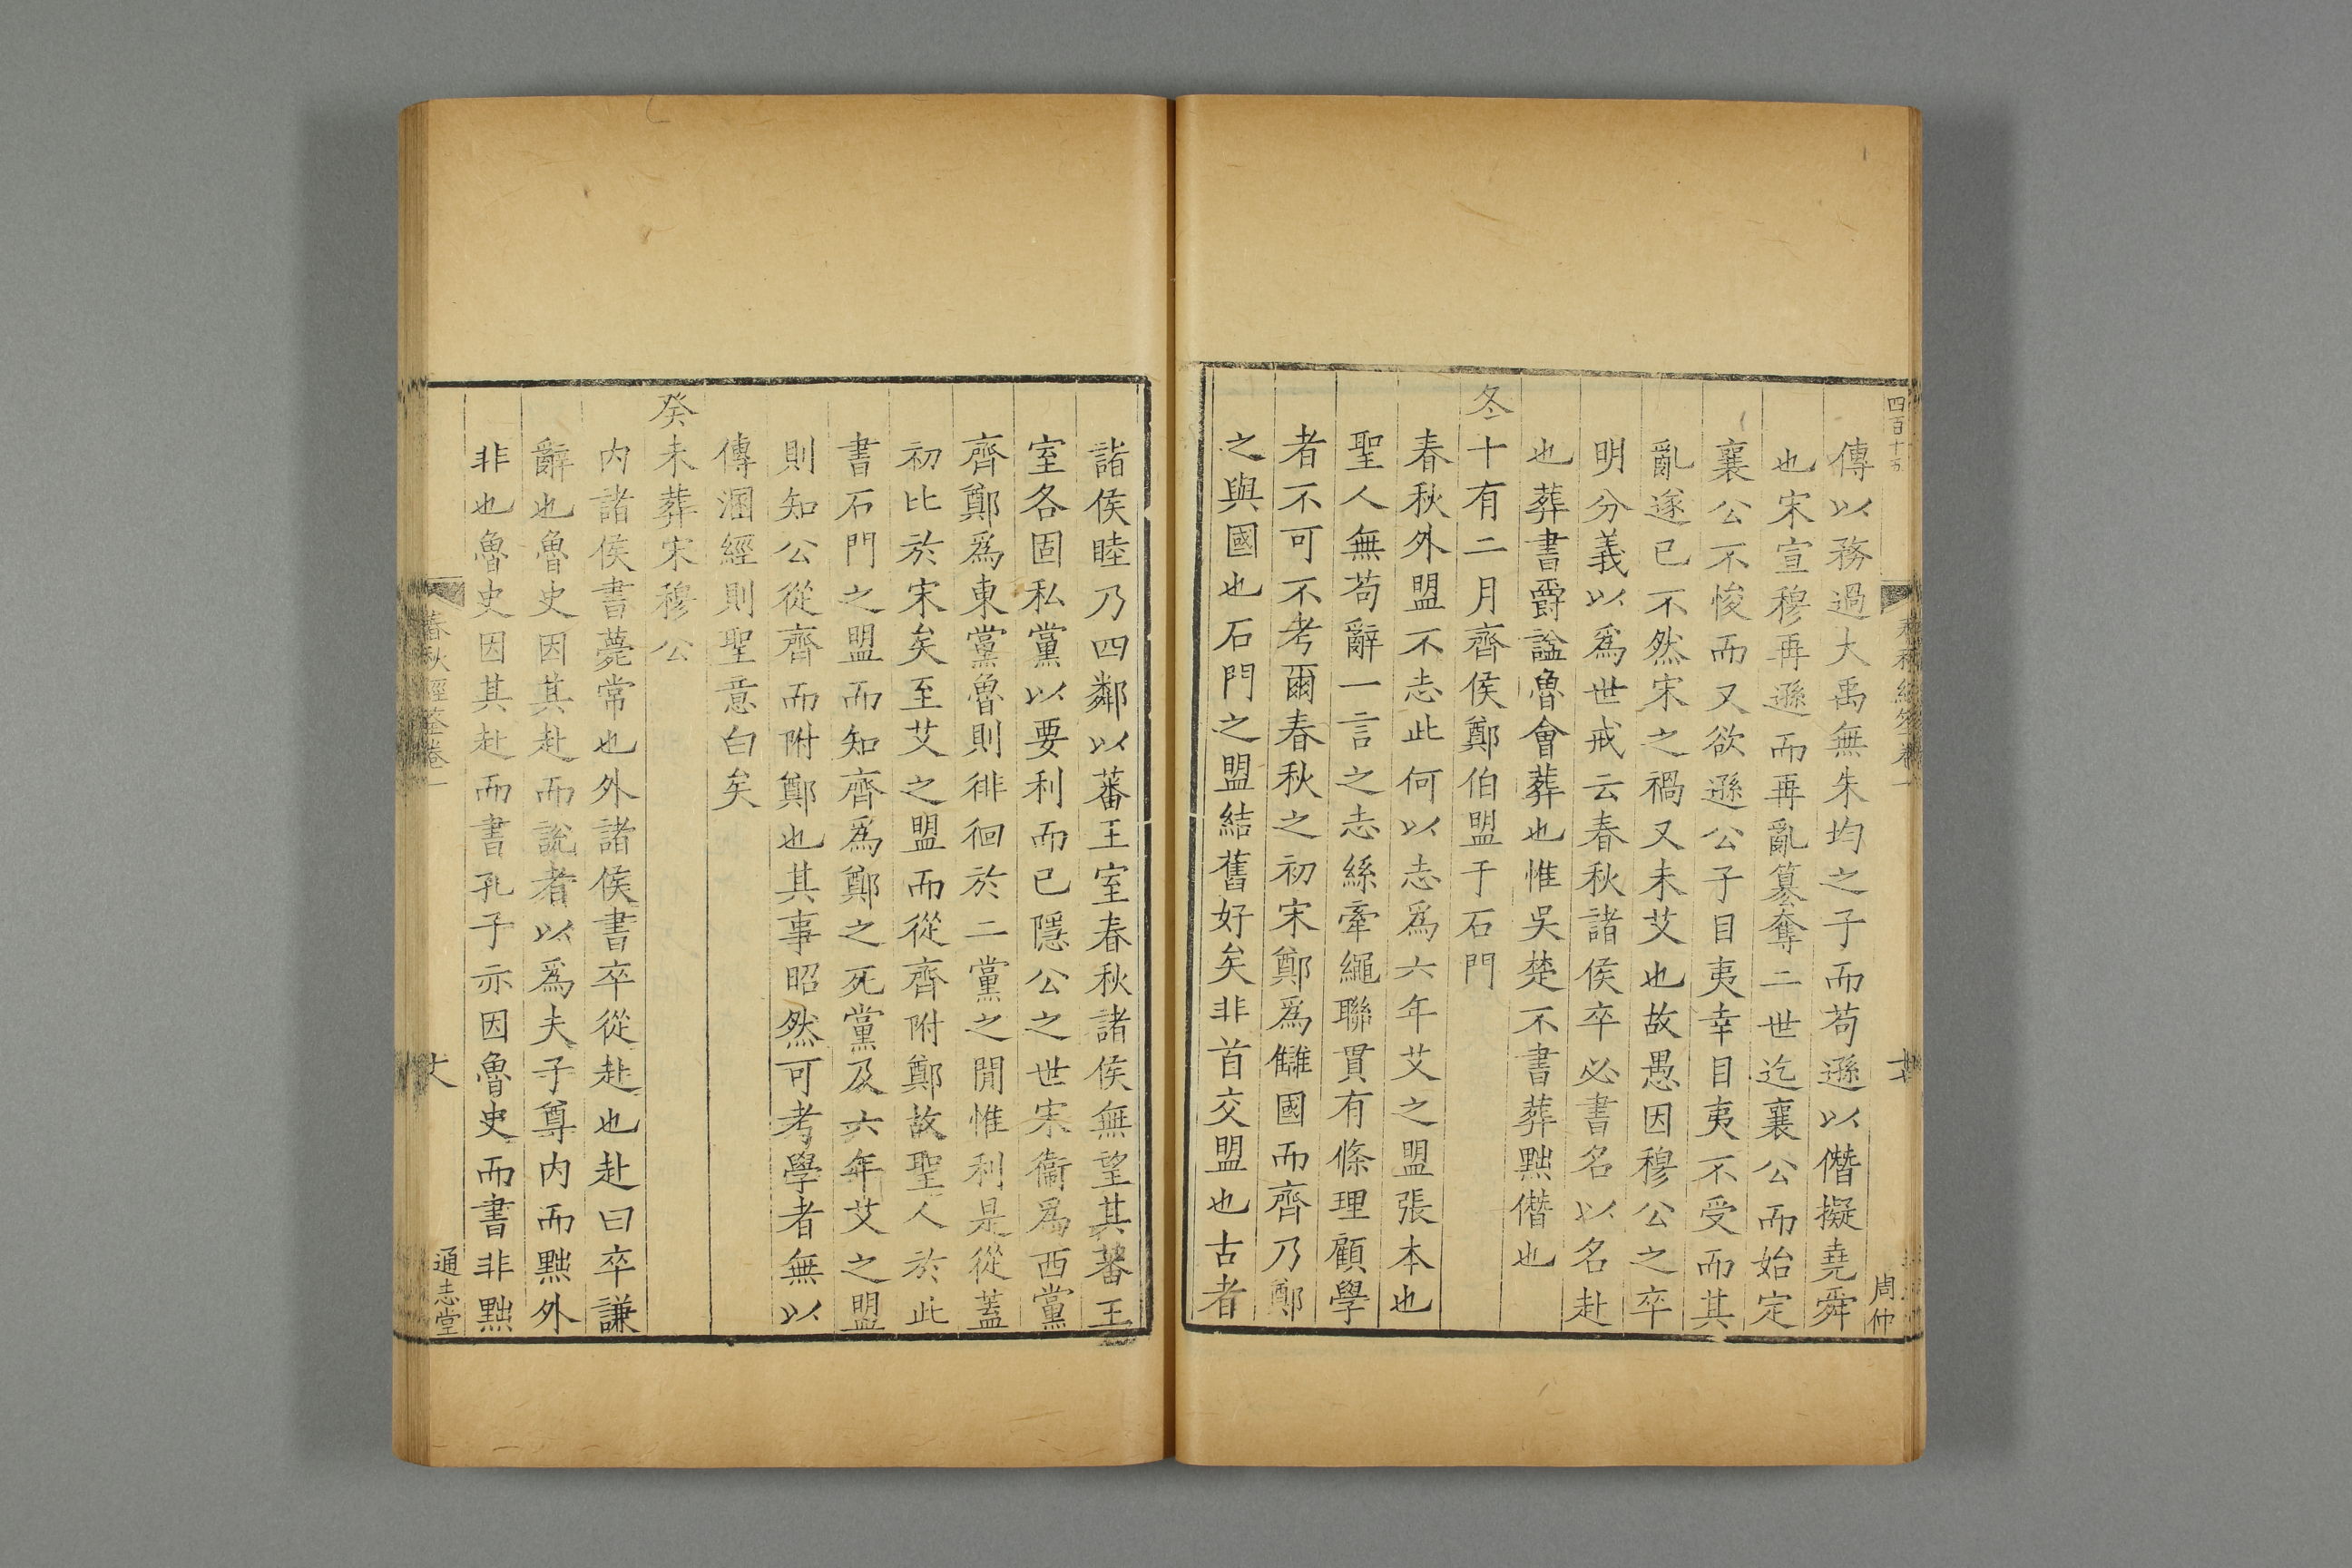 四百十五
周仲
傳以務過大禹無朱均之子而苟遜以僭擬堯舜
也宋宣穆再遜而再亂篡奪二世迄襄公而始定
襄公不悛而又欲遜公子目夷幸目夷不受而其
亂遂已不然宋之禍又未艾也故愚因穆公之卒
明分義以爲世戒云春秋諸侯卒必書名以名赴
也葬書爵諡魯會葬也惟吳楚不書葬黜僭也
冬十有二月齊侯鄭伯盟于石門
春秋外盟不志此何以志爲六年艾之盟張本也
聖人無苟辭一言之志絲牽繩聯貫有條理顧學
者不可不考爾春秋之初宋鄭爲讎國而齊乃鄭
之與國也石門之盟結舊好矣非首交盟也古者
諸侯睦乃四鄰以蕃王室春秋諸侯無望其蕃王
室各固私黨以要利而已隱公之世宋衞爲西黨
齊鄭爲東黨魯則徘徊於二黨之閒惟利是從蓋
初比於宋矣至艾之盟而從齊附鄭故聖人於此
書石門之盟而知齊爲鄭之死黨及六年艾之盟
則知公從齊而附鄭也其事昭然可考學者無以
傳溷經則聖意白矣
癸未葬宋穆公
内諸侯書薨常也外諸侯書卒從赴也赴曰卒謙
辭也魯史因其赴而説者以爲夫子尊内而黜外
非也魯史因其赴而書孔子亦因魯史而書非黜
春秋經筌卷一
通志堂